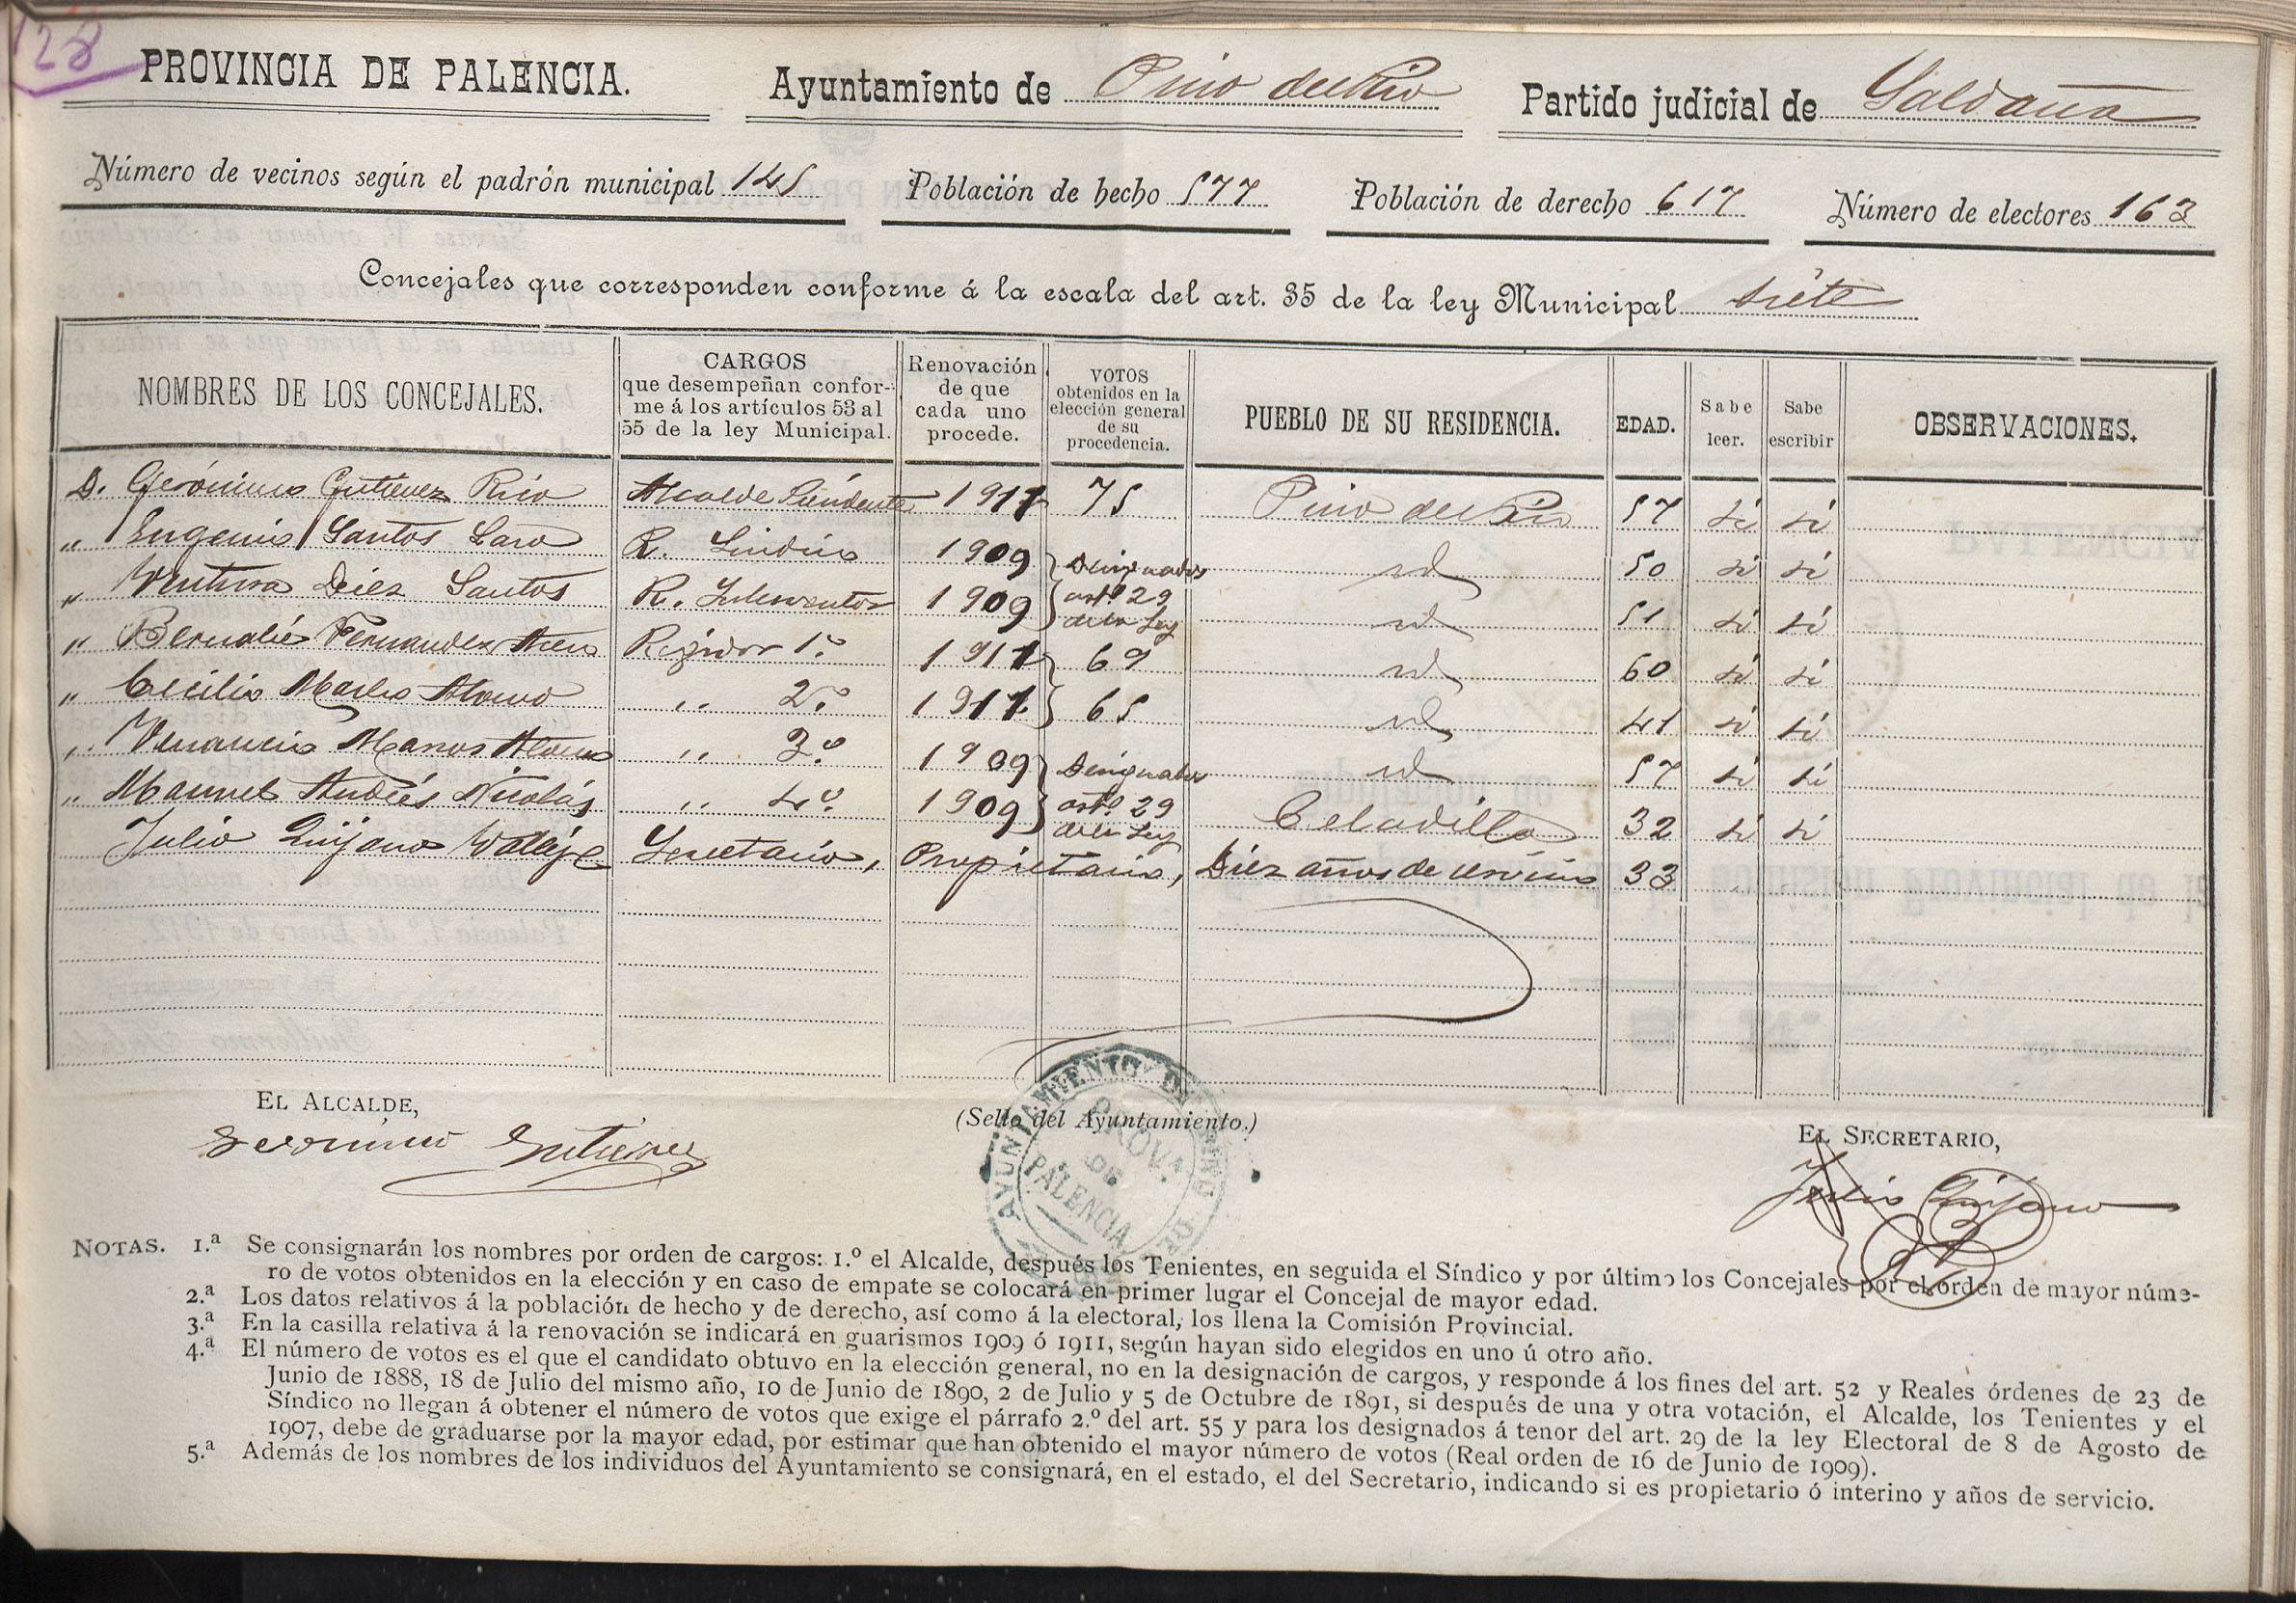 128
PROVINCIA DE PALENCIA. Ayuntamiento de Pino del Rio Partido judicial de Saldaña
Número de vecinos según el padrón municipal 145 Población de hecho 577 Población de derecho 617 Número de electores 163
Concejales que corresponden conforme á la escala del art. 35 de la ley Municipal siete
NOMBRES DE LOS CONCEJALES. CARGOS que desempeñan conforme á los artículos 53 al 55 de la ley Municipal. Renovación de que cada uno procede. VOTOS obtenidos en la elección general de su procedencia. PUEBLO DE SU RESIDENCIA. EDAD. Sabe leer. Sabe escribir OBSERVACIONES.
D. Gerónimo Gutierrez Rio Alcalde Presidente 1911 75 Pino del Rio 57 si si
" Eugenio Santos Laso R. Sindico 1909 Designados id 50 si si
" Ventura Diez Santos R. Interventor 1909 artº 29 de la Ley id 51 si si
" Bernabé Fernandez Regidor 1.º 1911 69 id 60 si si
" Cecilio Alonso " 2.º 1911 65 id 41 si si
" Venancio Manos Alonso " 3.º 1909 Designados id 57 si si
" Manuel Andrés Nicolás " 4.º 1909 artº 29 de la Ley Celadilla 32 si si
Julio Quijano Vallejo Secretario, Propietario, Diez años de servicio 33
EL ALCALDE,
Geronimo Gutierrez
(Sello del Ayuntamiento.)
AYUNTAMIENTO DE PINO DEL
PROV.ª DE PALENCIA
EL SECRETARIO,
Julio Quijano
NOTAS. 1.ª Se consignarán los nombres por orden de cargos: 1.º el Alcalde, después los Tenientes, en seguida el Síndico y por último los Concejales por el orden de mayor núme-
ro de votos obtenidos en la elección y en caso de empate se colocará en primer lugar el Concejal de mayor edad.
2.ª Los datos relativos á la población de hecho y de derecho, así como á la electoral, los llena la Comisión Provincial.
3.ª En la casilla relativa á la renovación se indicará en guarismos 1909 ó 1911, según hayan sido elegidos en uno ú otro año.
4.ª El número de votos es el que el candidato obtuvo en la elección general, no en la designación de cargos, y responde á los fines del art. 52 y Reales órdenes de 23 de
Junio de 1888, 18 de Julio del mismo año, 10 de Junio de 1890, 2 de Julio y 5 de Octubre de 1891, si después de una y otra votación, el Alcalde, los Tenientes y el
Síndico no llegan á obtener el número de votos que exige el párrafo 2.º del art. 55 y para los designados á tenor del art. 29 de la ley Electoral de 8 de Agosto de
1907, debe de graduarse por la mayor edad, por estimar que han obtenido el mayor número de votos (Real orden de 16 de Junio de 1909).
5.ª Además de los nombres de los individuos del Ayuntamiento se consignará, en el estado, el del Secretario, indicando si es propietario ó interino y años de servicio.